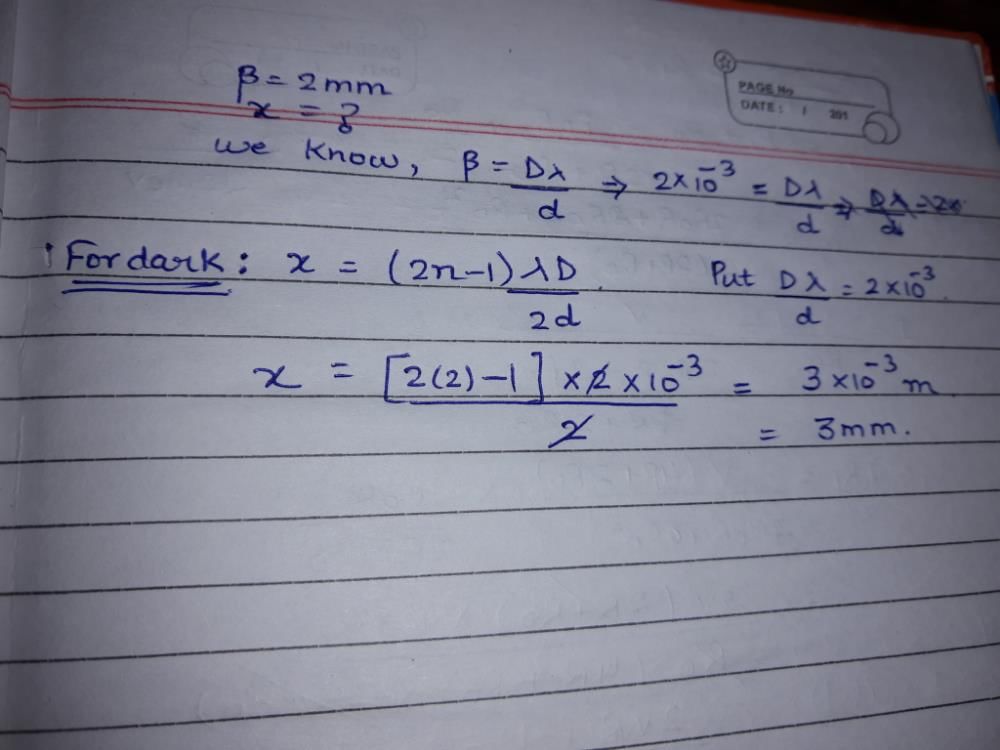 PAGE No
DATE: / 201
β = 2mm
x = ?
we know, β = Dλ/d ⇒ 2×10⁻³ = Dλ/d ⇒
For dark: x = (2n-1) λD/2d Put Dλ/d = 2×10⁻³
x = [2(2)-1] × 2 × 10⁻³/2 = 3×10⁻³ m
= 3mm.